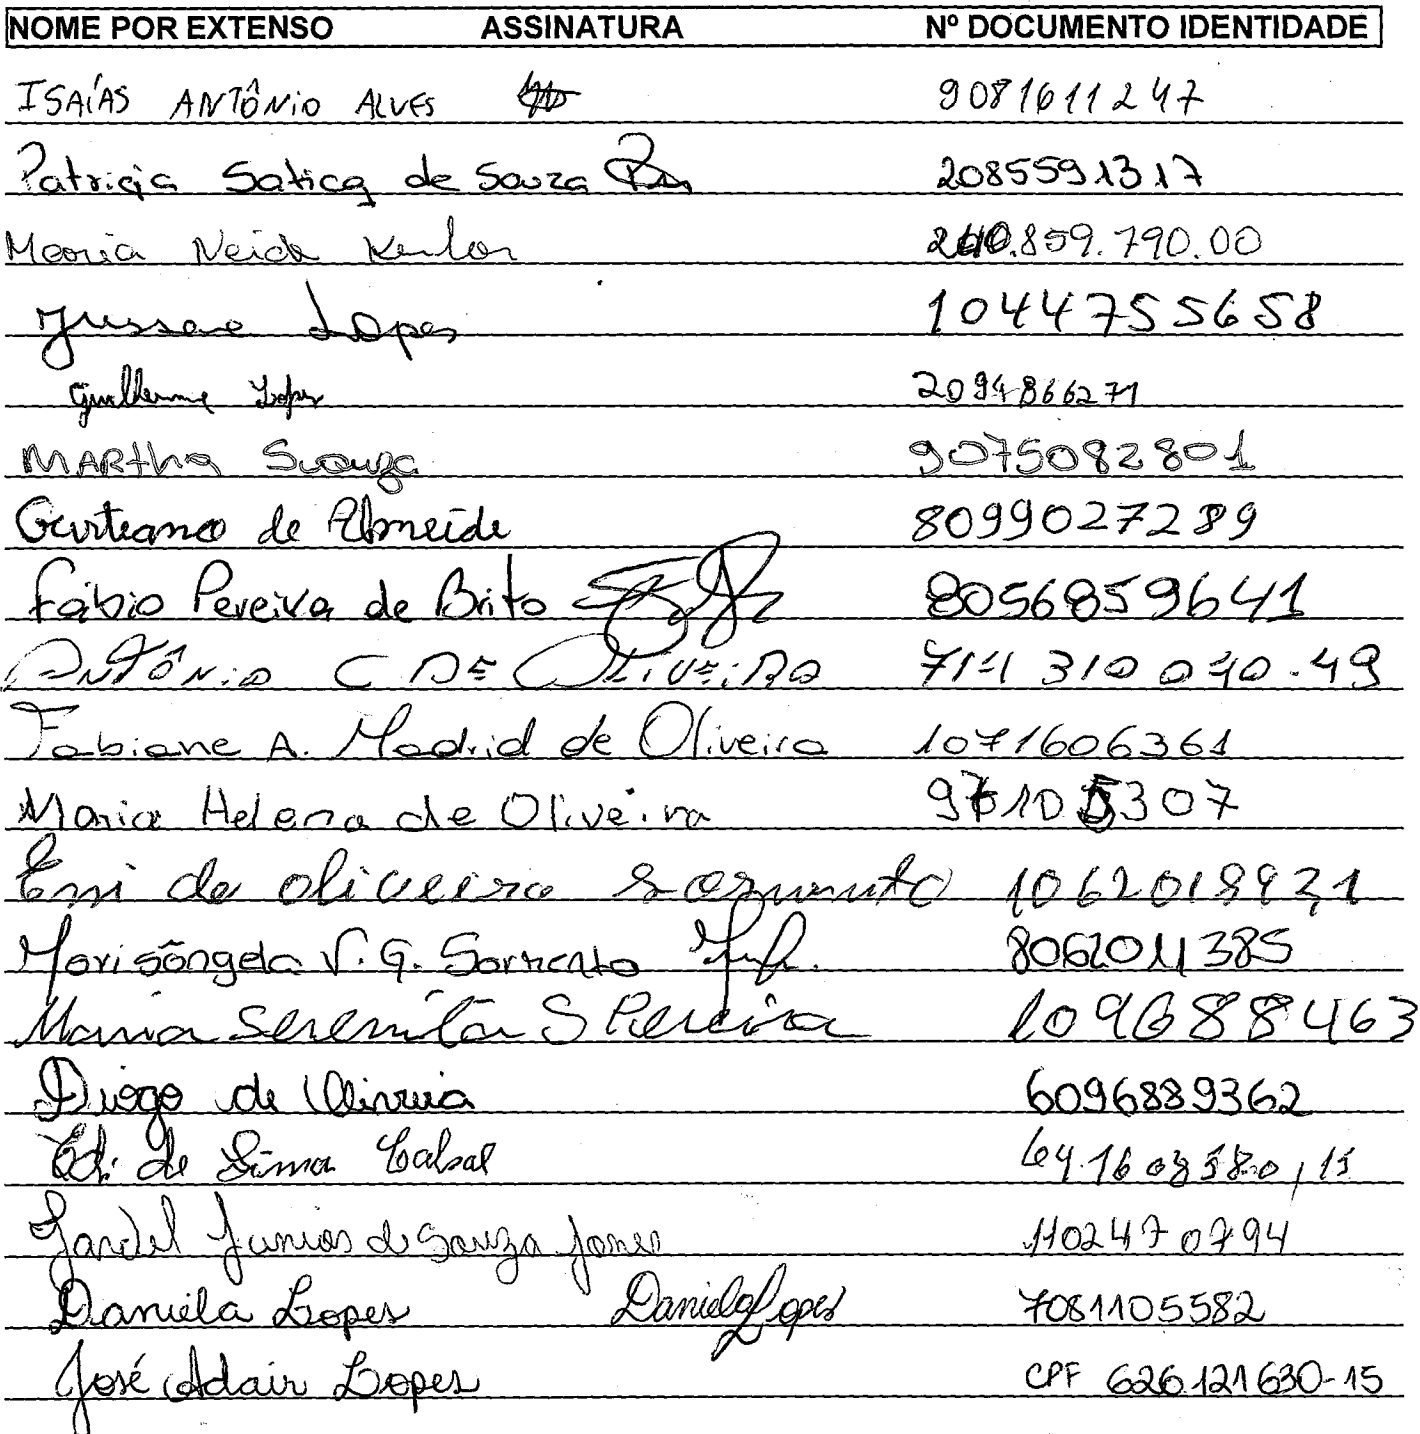 NOME POR EXTENSO ASSINATURA Nº DOCUMENTO IDENTIDADE
ISAÍAS ANTÔNIO ALVES 9081611247
Patricia de Souza 2085591317
Maria Neida .859.790.00
Lopes 1044755658
Guilherme Lopes 2094866271
MARTha 9075082801
de Almeida 8099027289
Fábio Pereira de Brito 8056859641
ANTÔNiO C DE OLiVEiRA 310
Fabiane A. Madrid de Oliveira 1071606361
Maria Helena de Oliveira
de oliveira
V. G. Sarmento 8062011385
Maria S Pereira 1096888463
Diogo de Oliveira 6096889362
de Lima
Jardel Junior de Souza 1102470794
Daniela Lopes Daniela Lopes 7081105582
José Adair Lopes CPF 626.121630-15